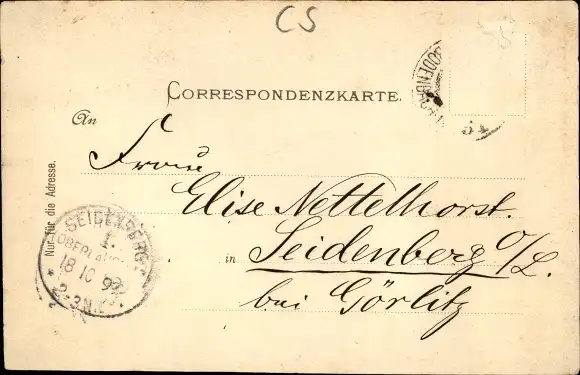 CS
CORRESPONDENZKARTE.
An
Frau
Elise Nettelhorst.
in Seidenberg O/L.
bei Görlitz
Nur für die Adresse.
SEIDENBERG
1.
18 10
2-3N.